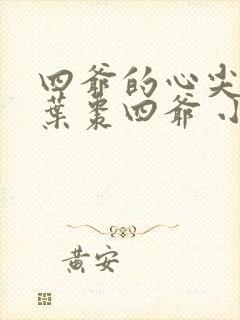 四爺的心尖
葉棗四爺 小
黃安